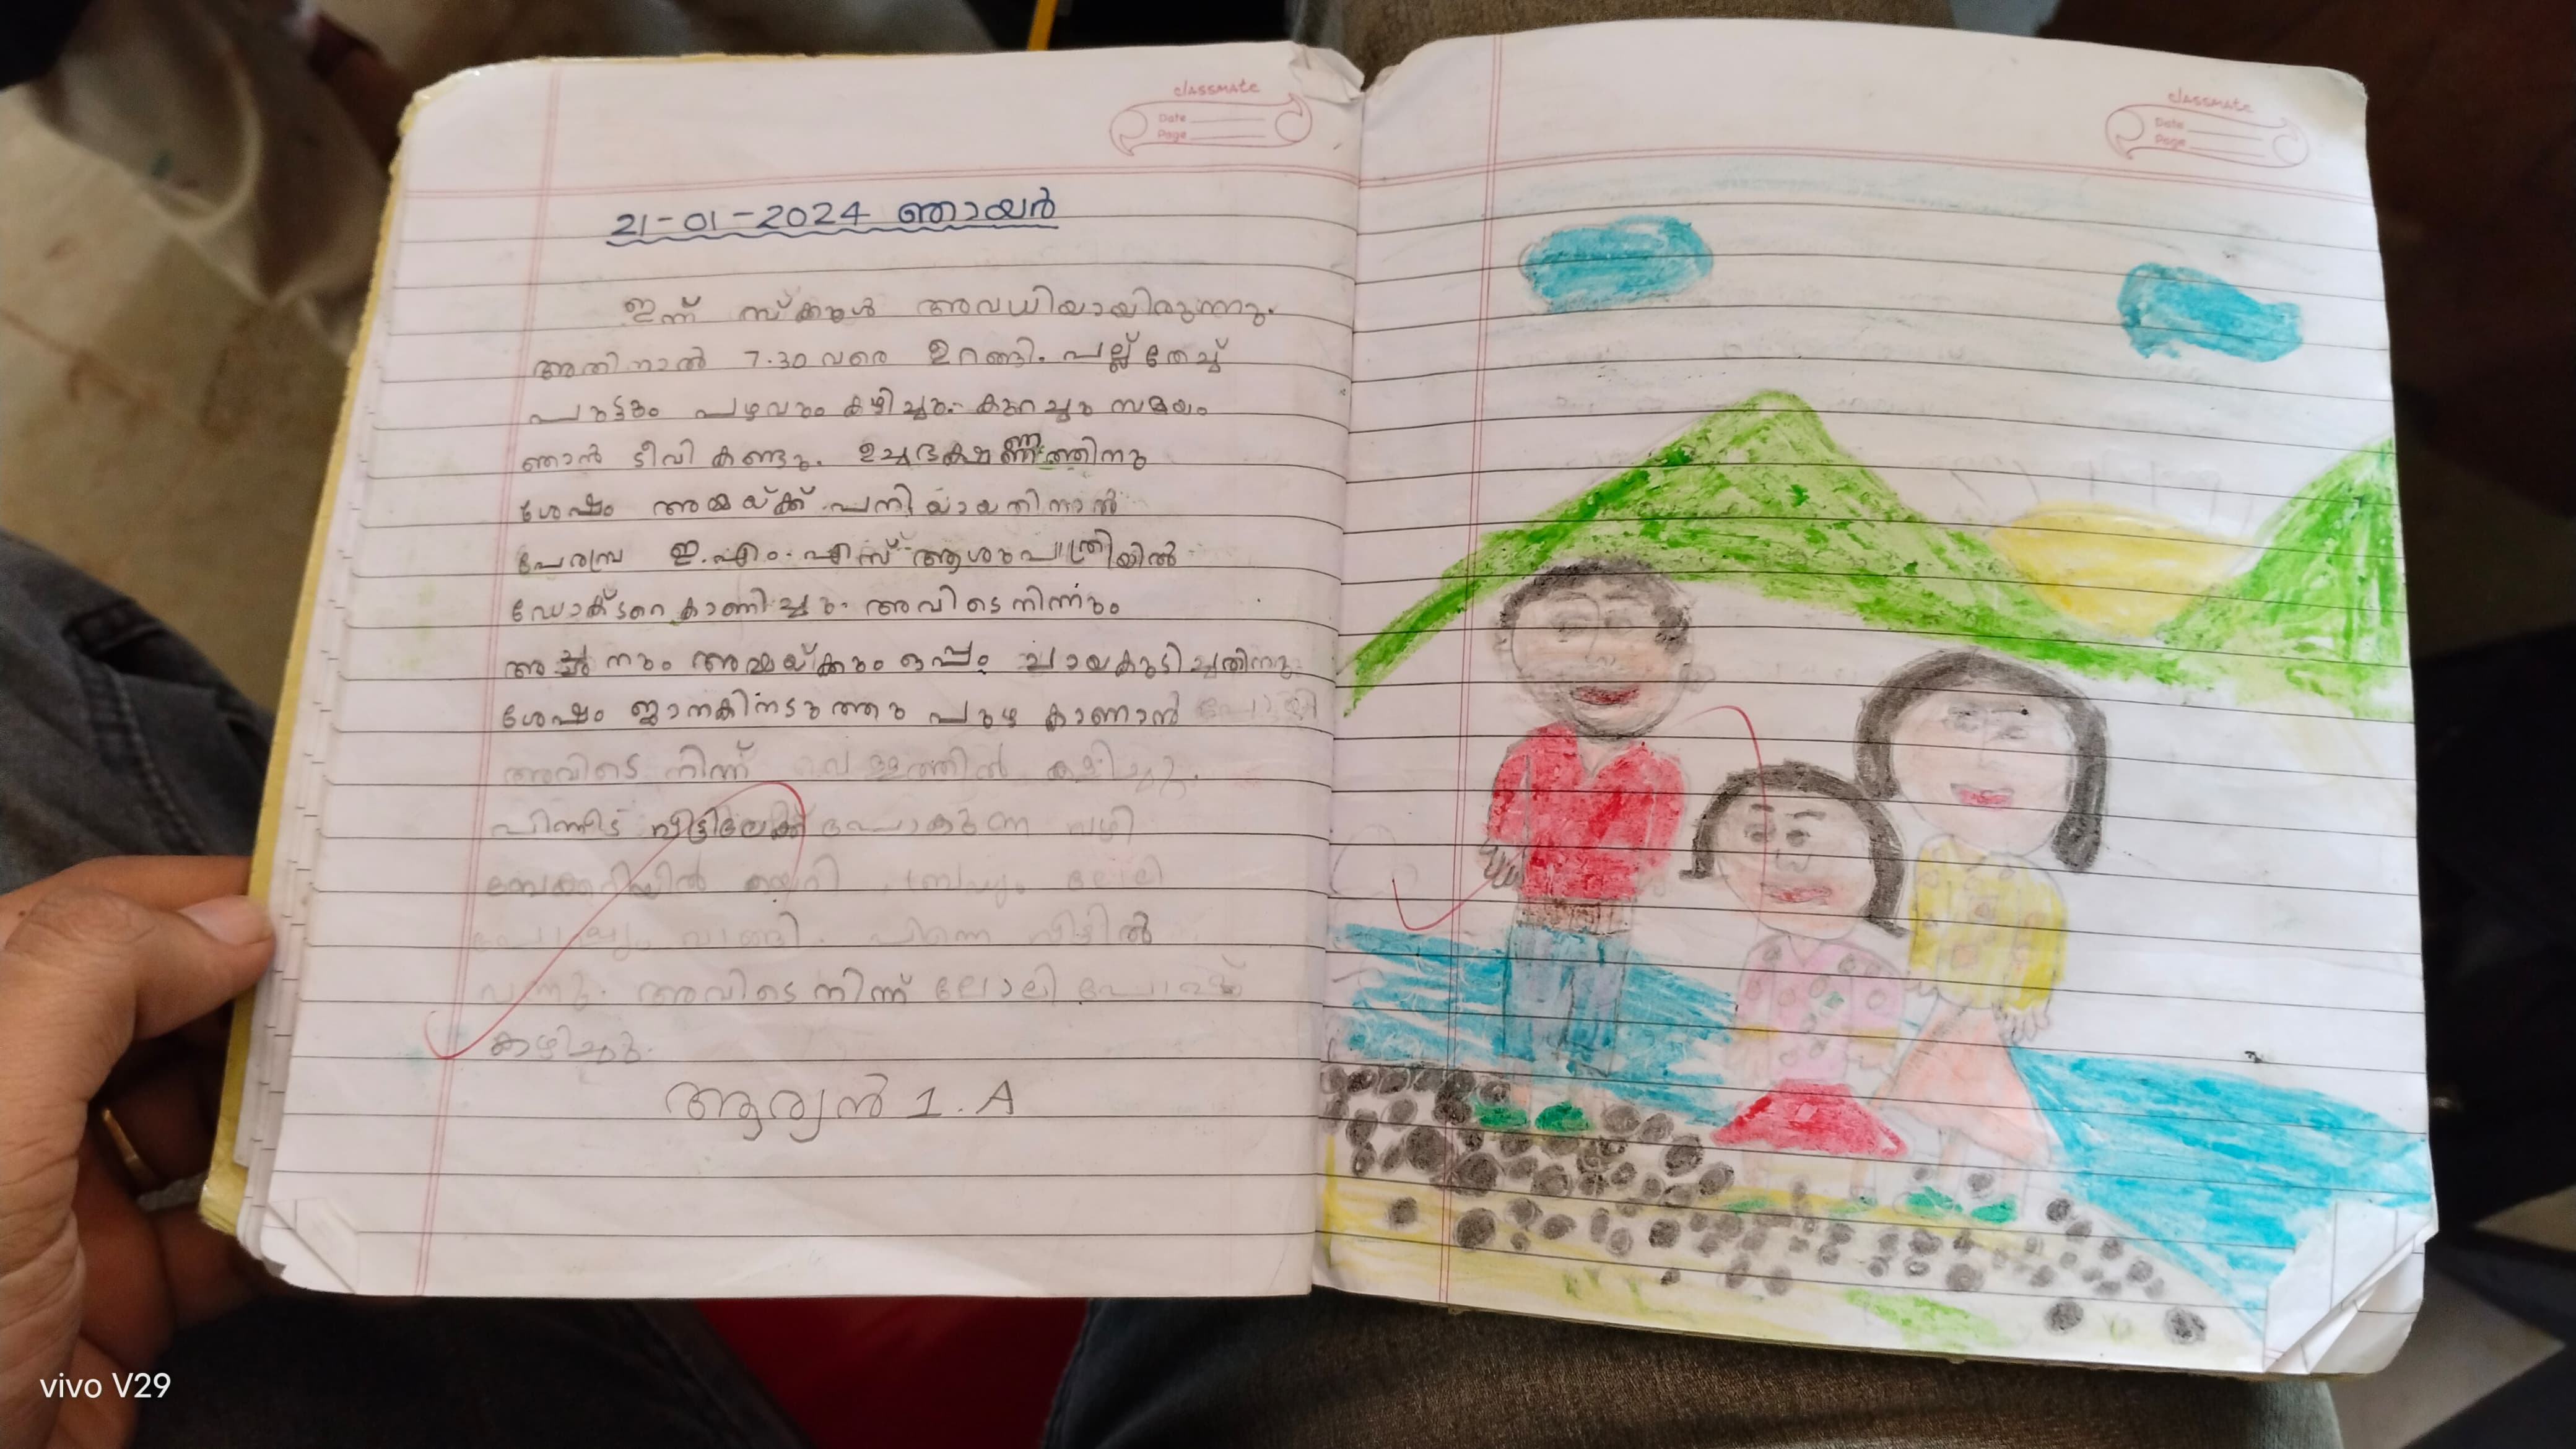 classmate
Date
Page
21-01-2024 ഞായർ
ഇന്ന് സ്ക്കൂൾ അവധിയായിരുന്നു.
അതിനാൽ 7.30 വരെ ഉറങ്ങി. പല്ല് തേച്ച്
പുട്ടും പഴവും കഴിച്ചു. കുറച്ചു സമയം
ഞാൻ ടീവി കണ്ടു. ഉച്ചഭക്ഷണത്തിനു
ശേഷം അമ്മയ്ക്ക് പനിയായതിനാൽ
പേരാമ്പ്ര ഇ.എം.എസ് ആശുപത്രിയിൽ
ഡോക്ടറെ കാണിച്ചു. അവിടെ നിന്നും
അച്ഛനും അമ്മയ്ക്കും ഒപ്പം ചായകുടിച്ചതിനു
ശേഷം ജാനകിനടുത്തു പുഴ കാണാൻ പോയി
അവിടെ നിന്ന് വെള്ളത്തിൽ കളിച്ചു.
പിന്നീട് വീട്ടിലേക്ക് പോകുന്ന വഴി
ബേക്കറിയിൽ കയറി ലോലി
വാങ്ങി. പിന്നെ വീട്ടിൽ
വന്നു. അവിടെ നിന്ന് ലോലി പോപ്പ്
കഴിച്ചു.
ആര്യൻ 1.A
classmate
Date
Page
vivo V29